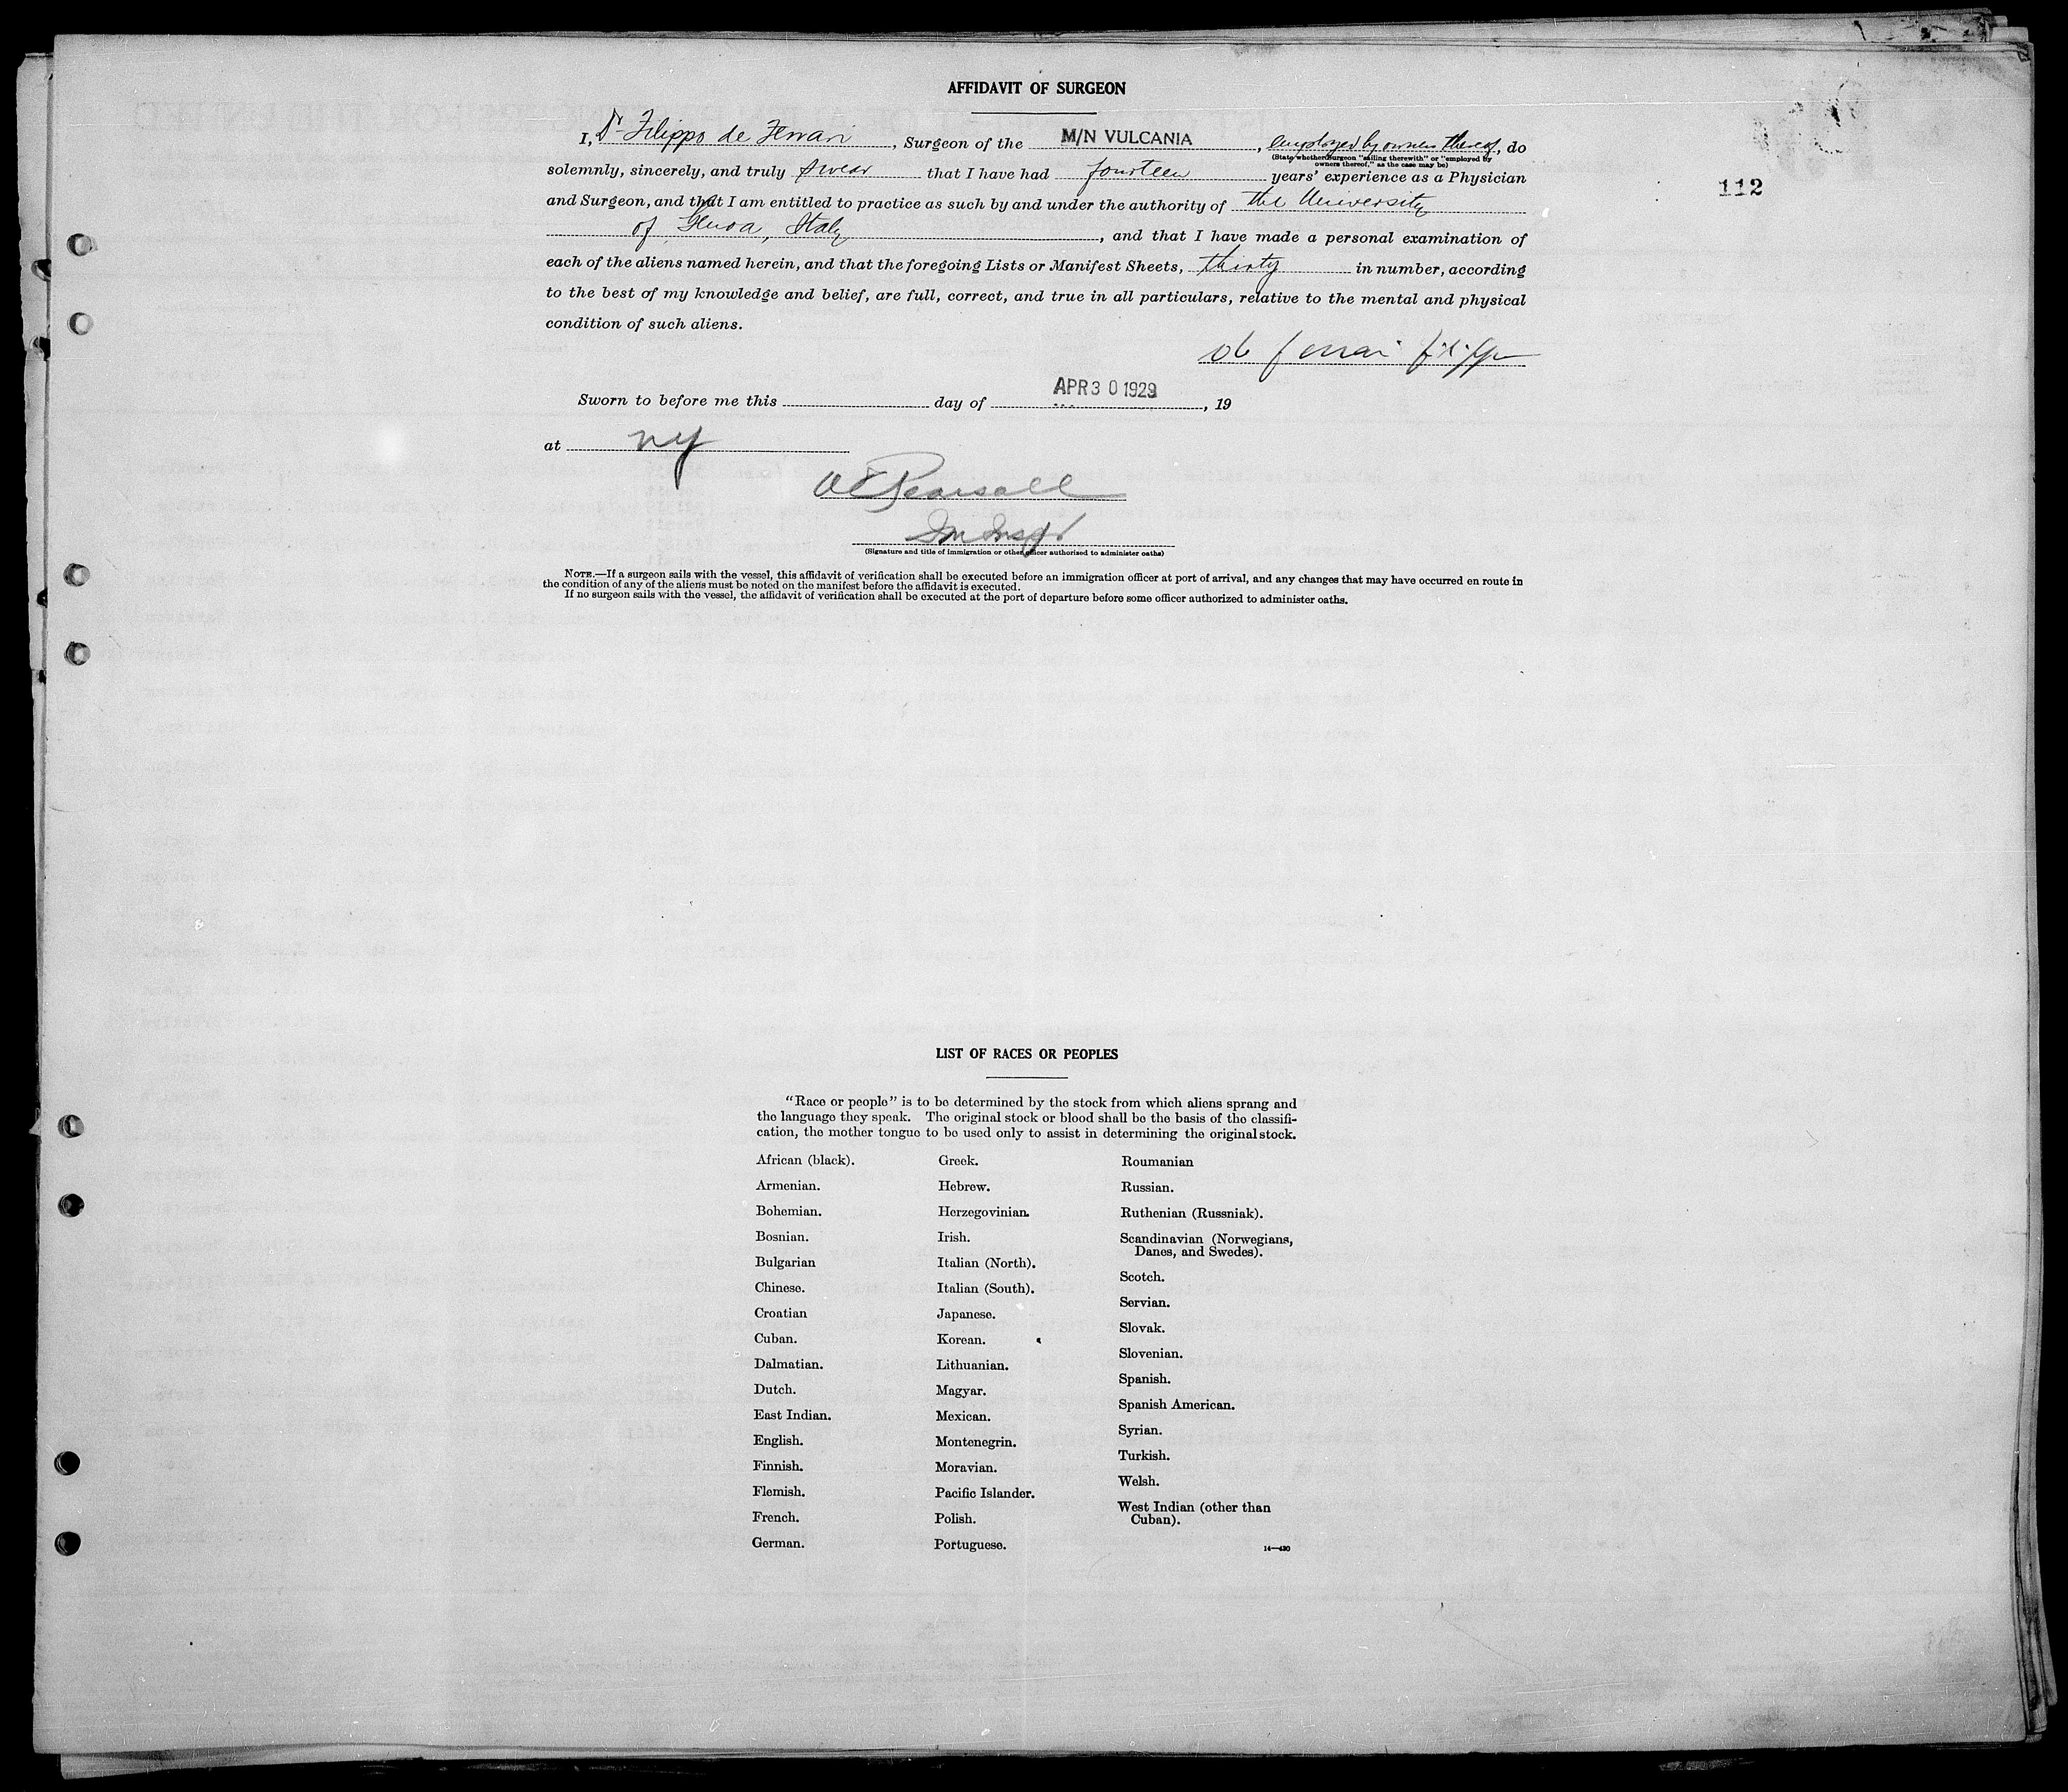 AFFIDAVIT OF SURGEON
112
I, Dr Filippo de Ferrari, Surgeon of the M/N VULCANIA, employed by owners thereof, do
(State whether Surgeon "sailing therewith" or "employed by
owners thereof," as the case may be)
solemnly, sincerely, and truly swear that I have had fourteen years' experience as a Physician
and Surgeon, and that I am entitled to practice as such by and under the authority of the University
of Genoa, Italy, and that I have made a personal examination of
each of the aliens named herein, and that the foregoing Lists or Manifest Sheets, thirty in number, according
to the best of my knowledge and belief, are full, correct, and true in all particulars, relative to the mental and physical
condition of such aliens.
de ferrari filippo
Sworn to before me this day of APR 30 1929, 19
at ny
Pearsall
Im Inspr
(Signature and title of immigration or other officer authorized to administer oaths)
NOTE.—If a surgeon sails with the vessel, this affidavit of verification shall be executed before an immigration officer at port of arrival, and any changes that may have occurred en route in
the condition of any of the aliens must be noted on the manifest before the affidavit is executed.
If no surgeon sails with the vessel, the affidavit of verification shall be executed at the port of departure before some officer authorized to administer oaths.
LIST OF RACES OR PEOPLES
"Race or people" is to be determined by the stock from which aliens sprang and
the language they speak. The original stock or blood shall be the basis of the classifi-
cation, the mother tongue to be used only to assist in determining the original stock.
African (black).
Armenian.
Bohemian.
Bosnian.
Bulgarian
Chinese.
Croatian
Cuban.
Dalmatian.
Dutch.
East Indian.
English.
Finnish.
Flemish.
French.
German.
Greek.
Hebrew.
Herzegovinian.
Irish.
Italian (North).
Italian (South).
Japanese.
Korean.
Lithuanian.
Magyar.
Mexican.
Montenegrin.
Moravian.
Pacific Islander.
Polish.
Portuguese.
Roumanian
Russian.
Ruthenian (Russniak).
Scandinavian (Norwegians,
Danes, and Swedes).
Scotch.
Servian.
Slovak.
Slovenian.
Spanish.
Spanish American.
Syrian.
Turkish.
Welsh.
West Indian (other than
Cuban).
14—430